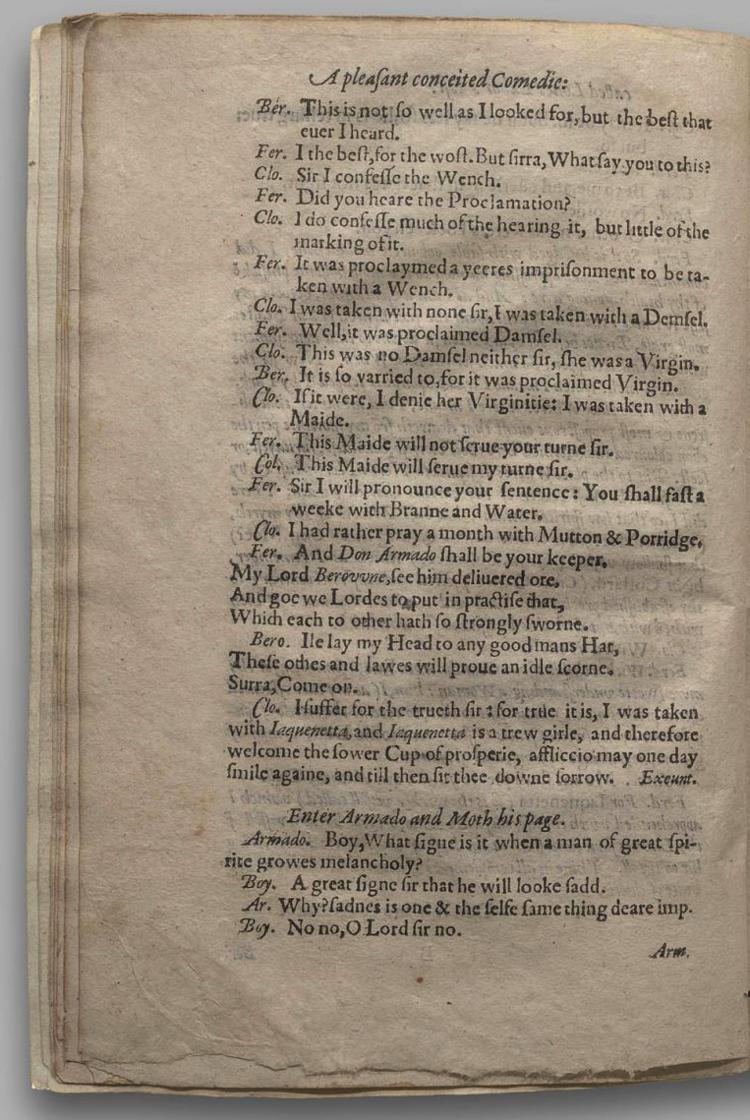 A pleaſant conceited Comedie:
Ber. This is not ſo well as I looked for, but the beſt that
euer I heard.
Fer. I the beſt, for the woſt. But ſirra, What ſay you to this?
Clo. Sir I confeſſe the Wench.
Fer. Did you heare the Proclamation?
Clo. I do confeſſe much of the hearing it, but little of the
marking of it.
Fer. It was proclaymed a yeeres impriſonment to be ta-
ken with a Wench.
Clo. I was taken with none ſir, I was taken with a Demſel.
Fer. Well, it was proclaimed Damſel.
Clo. This was no Damſel neither ſir, ſhe was a Virgin.
Ber. It is ſo varried to, for it was proclaimed Virgin.
Clo. If it were, I denie her Virginitie: I was taken with a
Maide.
Fer. This Maide will not ſerue your turne ſir.
Col. This Maide will ſerue my turne ſir.
Fer. Sir I will pronounce your ſentence: You ſhall faſt a
weeke with Branne and Water.
Clo. I had rather pray a month with Mutton & Porridge.
Fer. And Don Armado ſhall be your keeper.
My Lord Berovvne, ſee him deliuered ore,
And goe we Lordes to put in practiſe that,
Which each to other hath ſo ſtrongly ſworne.
Bero. Ile lay my Head to any good mans Hat,
Theſe othes and lawes will proue an idle ſcorne.
Surra, Come on.
Clo. I ſuffer for the trueth ſir: for true it is, I was taken
with Iaquenetta, and Iaquenetta is a trew girle, and therefore
welcome the ſower Cup of proſperie, affliccio may one day
ſmile againe, and till then ſit thee downe ſorrow. Exeunt.
Enter Armado and Moth his page.
Armado. Boy, What ſigne is it when a man of great ſpi-
rite growes melancholy?
Boy. A great ſigne ſir that he will looke ſadd.
Ar. Why? ſadnes is one & the ſelfe ſame thing deare imp.
Boy. No no, O Lord ſir no.
Arm.